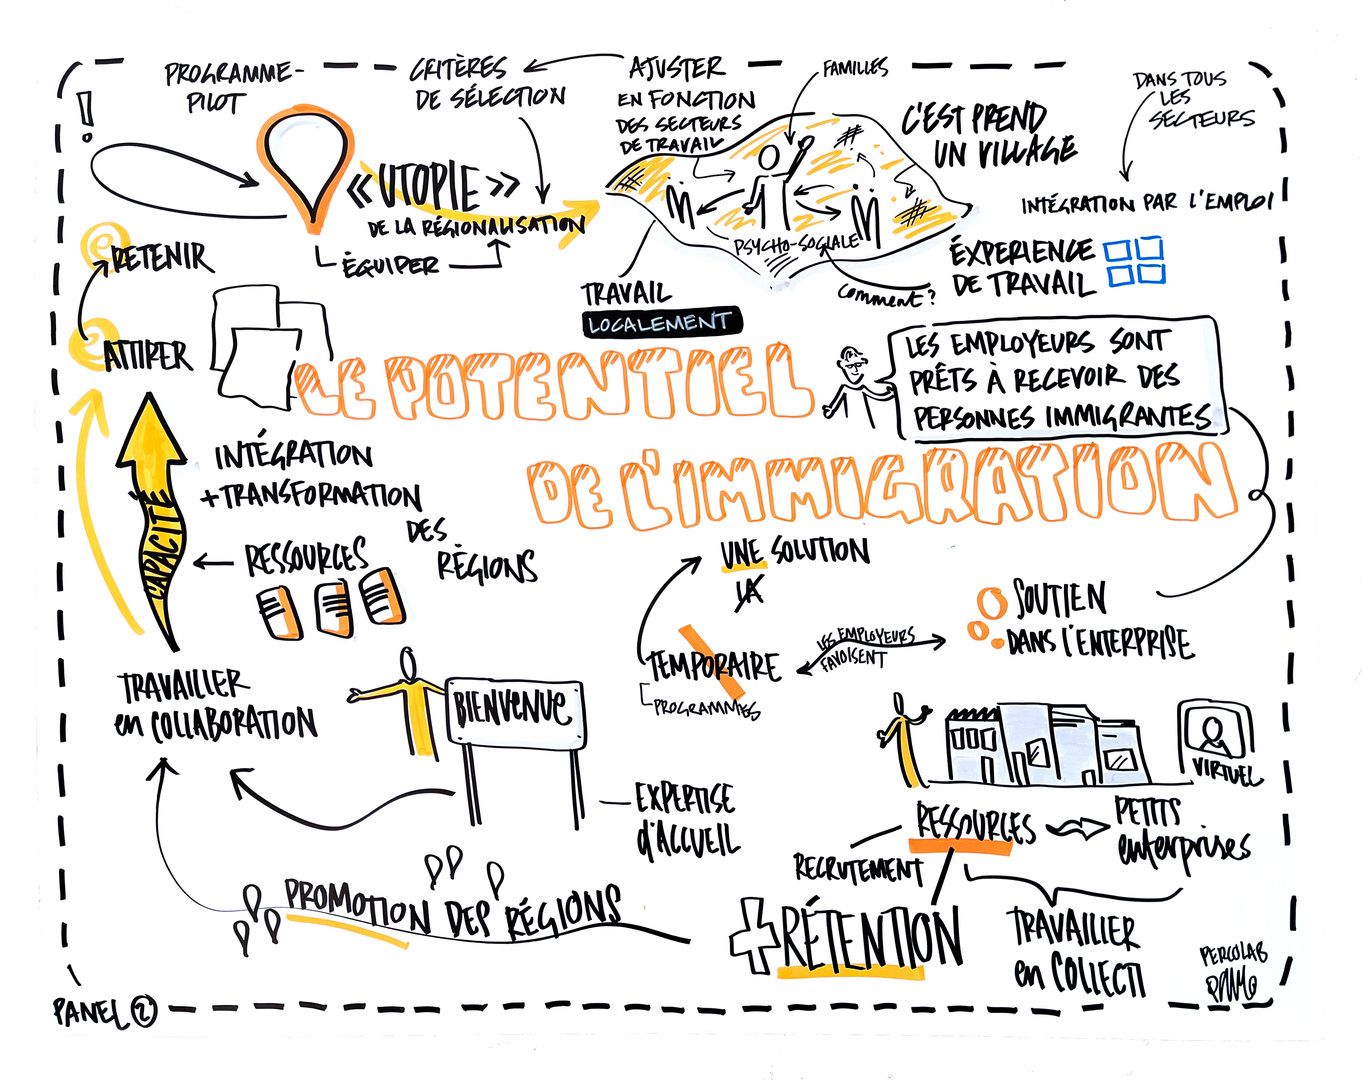 !
PROGRAMME-
PILOT
CRITÈRES
DE SÉLECTION
AJUSTER
EN FONCTION
DES SECTEURS
DE TRAVAIL
FAMILLES
C'EST PREND
UN VILLAGE
DANS TOUS
LES
SECTEURS
INTÉGRATION PAR L'EMPLOI
« UTOPIE »
DE LA RÉGIONALISATION
ÉQUIPER
PSYCHO-SOCIALE
comment?
ÉXPERIENCE
DE TRAVAIL
TRAVAIL
LOCALEMENT
RETENIR
ATTIRER
LE POTENTIEL
DE L'IMMIGRATION
LES EMPLOYEURS SONT
PRÊTS À RECEVOIR DES
PERSONNES IMMIGRANTES
INTÉGRATION
+TRANSFORMATION
DES
RÉGIONS
CAPACITÉ
RESSOURCES
UNE SOLUTION
LA
TEMPORAIRE
PROGRAMMES
LES EMPLOYEURS
FAVOISENT
SOUTIEN
DANS L'ENTERPRISE
TRAVAILLER
en COLLABORATION
BIENVENUE
EXPERTISE
d'ACCUEIL
VIRTUEL
RESSOURCES
PETITS
enterprises
RECRUTEMENT
+ RÉTENTION
TRAVAILLER
en COLLECTI
PROMOTION DES RÉGIONS
PERCOLAB
PANEL 2